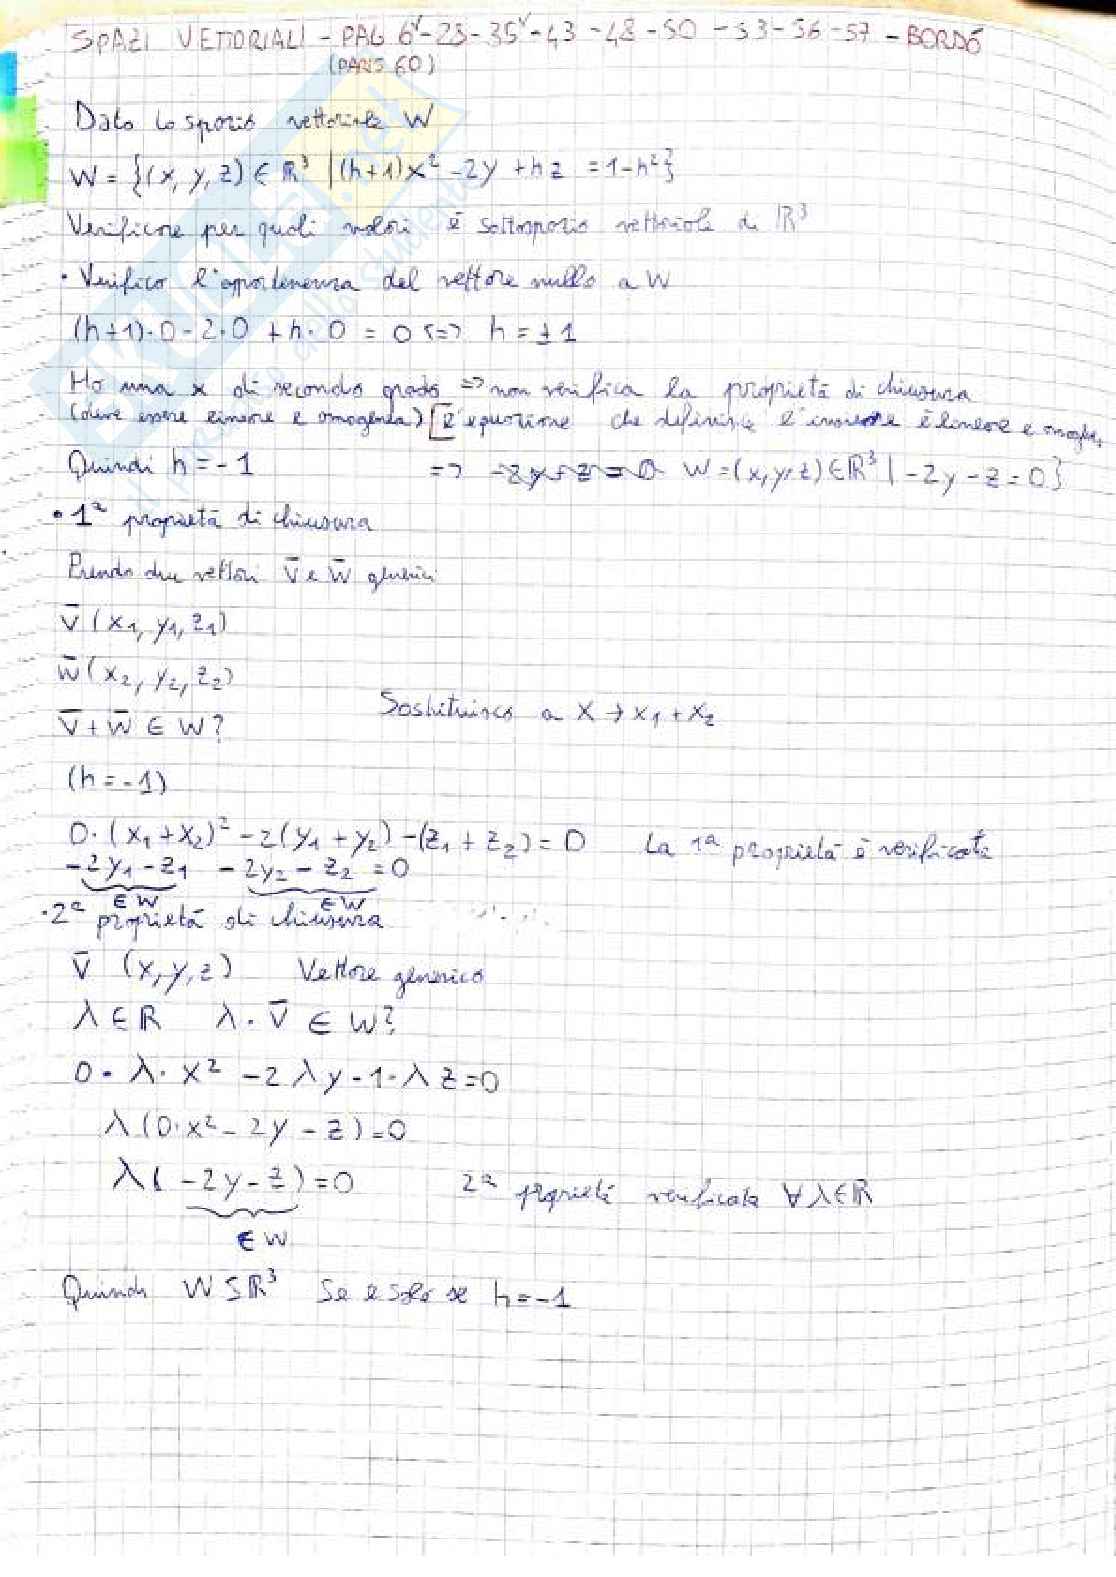 SPAZI VETTORIALI - PAG 6√-23-35√-43-48-50-53-56-57 - BORDÓ
(PARS 60)
Dato lo spazio vettoriale W
W = {(x, y, z) ∈ ℝ³ | (h+1)x² -2y + hz = 1-h²}
Verificare per quali valori è sottospazio vettoriale di ℝ³
• Verifico l'appartenenza del vettore nullo a W
(h+1)·0 - 2·0 + h·0 = 0 <=> h = ±1
Ho una x di secondo grado => non verifica la proprietà di chiusura
(deve essere lineare e omogenea) [L'equazione che definisce l'insieme è lineare e omogenea
Quindi h = -1 => -2y-z=0 W = (x, y, z) ∈ ℝ³ | -2y - z = 0}
• 1ª proprietà di chiusura
Prendo due vettori v̄ e w̄ generici
v̄ (x₁, y₁, z₁)
w̄ (x₂, y₂, z₂)
Sostituisco a x → x₁ + x₂
v̄ + w̄ ∈ W?
(h = -1)
0·(x₁ + x₂)² - 2(y₁ + y₂) - (z₁ + z₂) = 0 La 1ª proprietà è verificata
-2y₁ - z₁ - 2y₂ - z₂ = 0
∈ W ∈ W
• 2ª proprietà di chiusura
v̄ (x, y, z) Vettore generico
λ ∈ ℝ λ · v̄ ∈ W?
0 · λ · x² - 2λy - 1·λz = 0
λ(0·x² - 2y - z) = 0
λ(-2y - z) = 0 2ª proprietà verificata ∀λ∈ℝ
∈ W
Quindi W S ℝ³ se e solo se h = -1